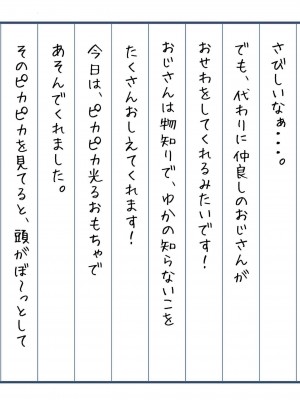 さびしいなぁ・・・。
でも、代わりに仲良しのおじさんが
おせわをしてくれるみたいです！
おじさんは物知りで、ゆかの知らないこを
たくさんおしえてくれます！
今日は、ピカピカ光るおもちゃで
あそんでくれました。
そのピカピカを見てると、頭がぼ～っとして